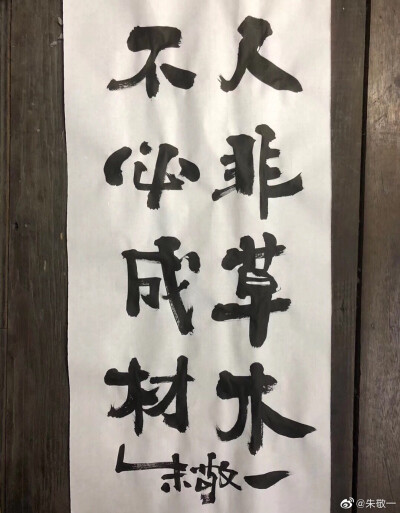 人非草木
不必成材
朱敬一
@朱敬一